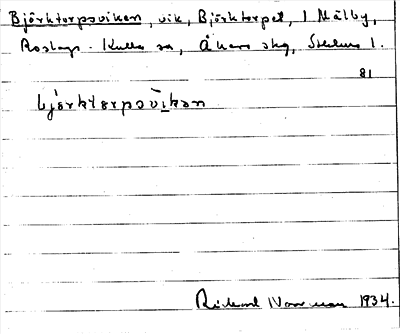 Björktorpsviken, vik, Björktorpet, 1 Mälby,
Roslags-Kulla sn, Åkers skg, Stkhms l.
81
bjärktɛrpsvìkan
Rickard Norrman 1934.